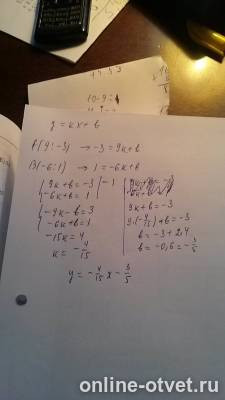 y = kx + b
A(9; -3) → -3 = 9k + b
B(-6; 1) → 1 = -6k + b
{ 9k + b = -3 | -1
-6k + b = 1
{ -9k - b = 3
-6k + b = 1
-15k = 4
k = -4/15
9k + b = -3
9·(-4/15) + b = -3
b = -3 + 2,4
b = -0,6 = -3/5
y = -4/15 x - 3/5
online-otvet.ru